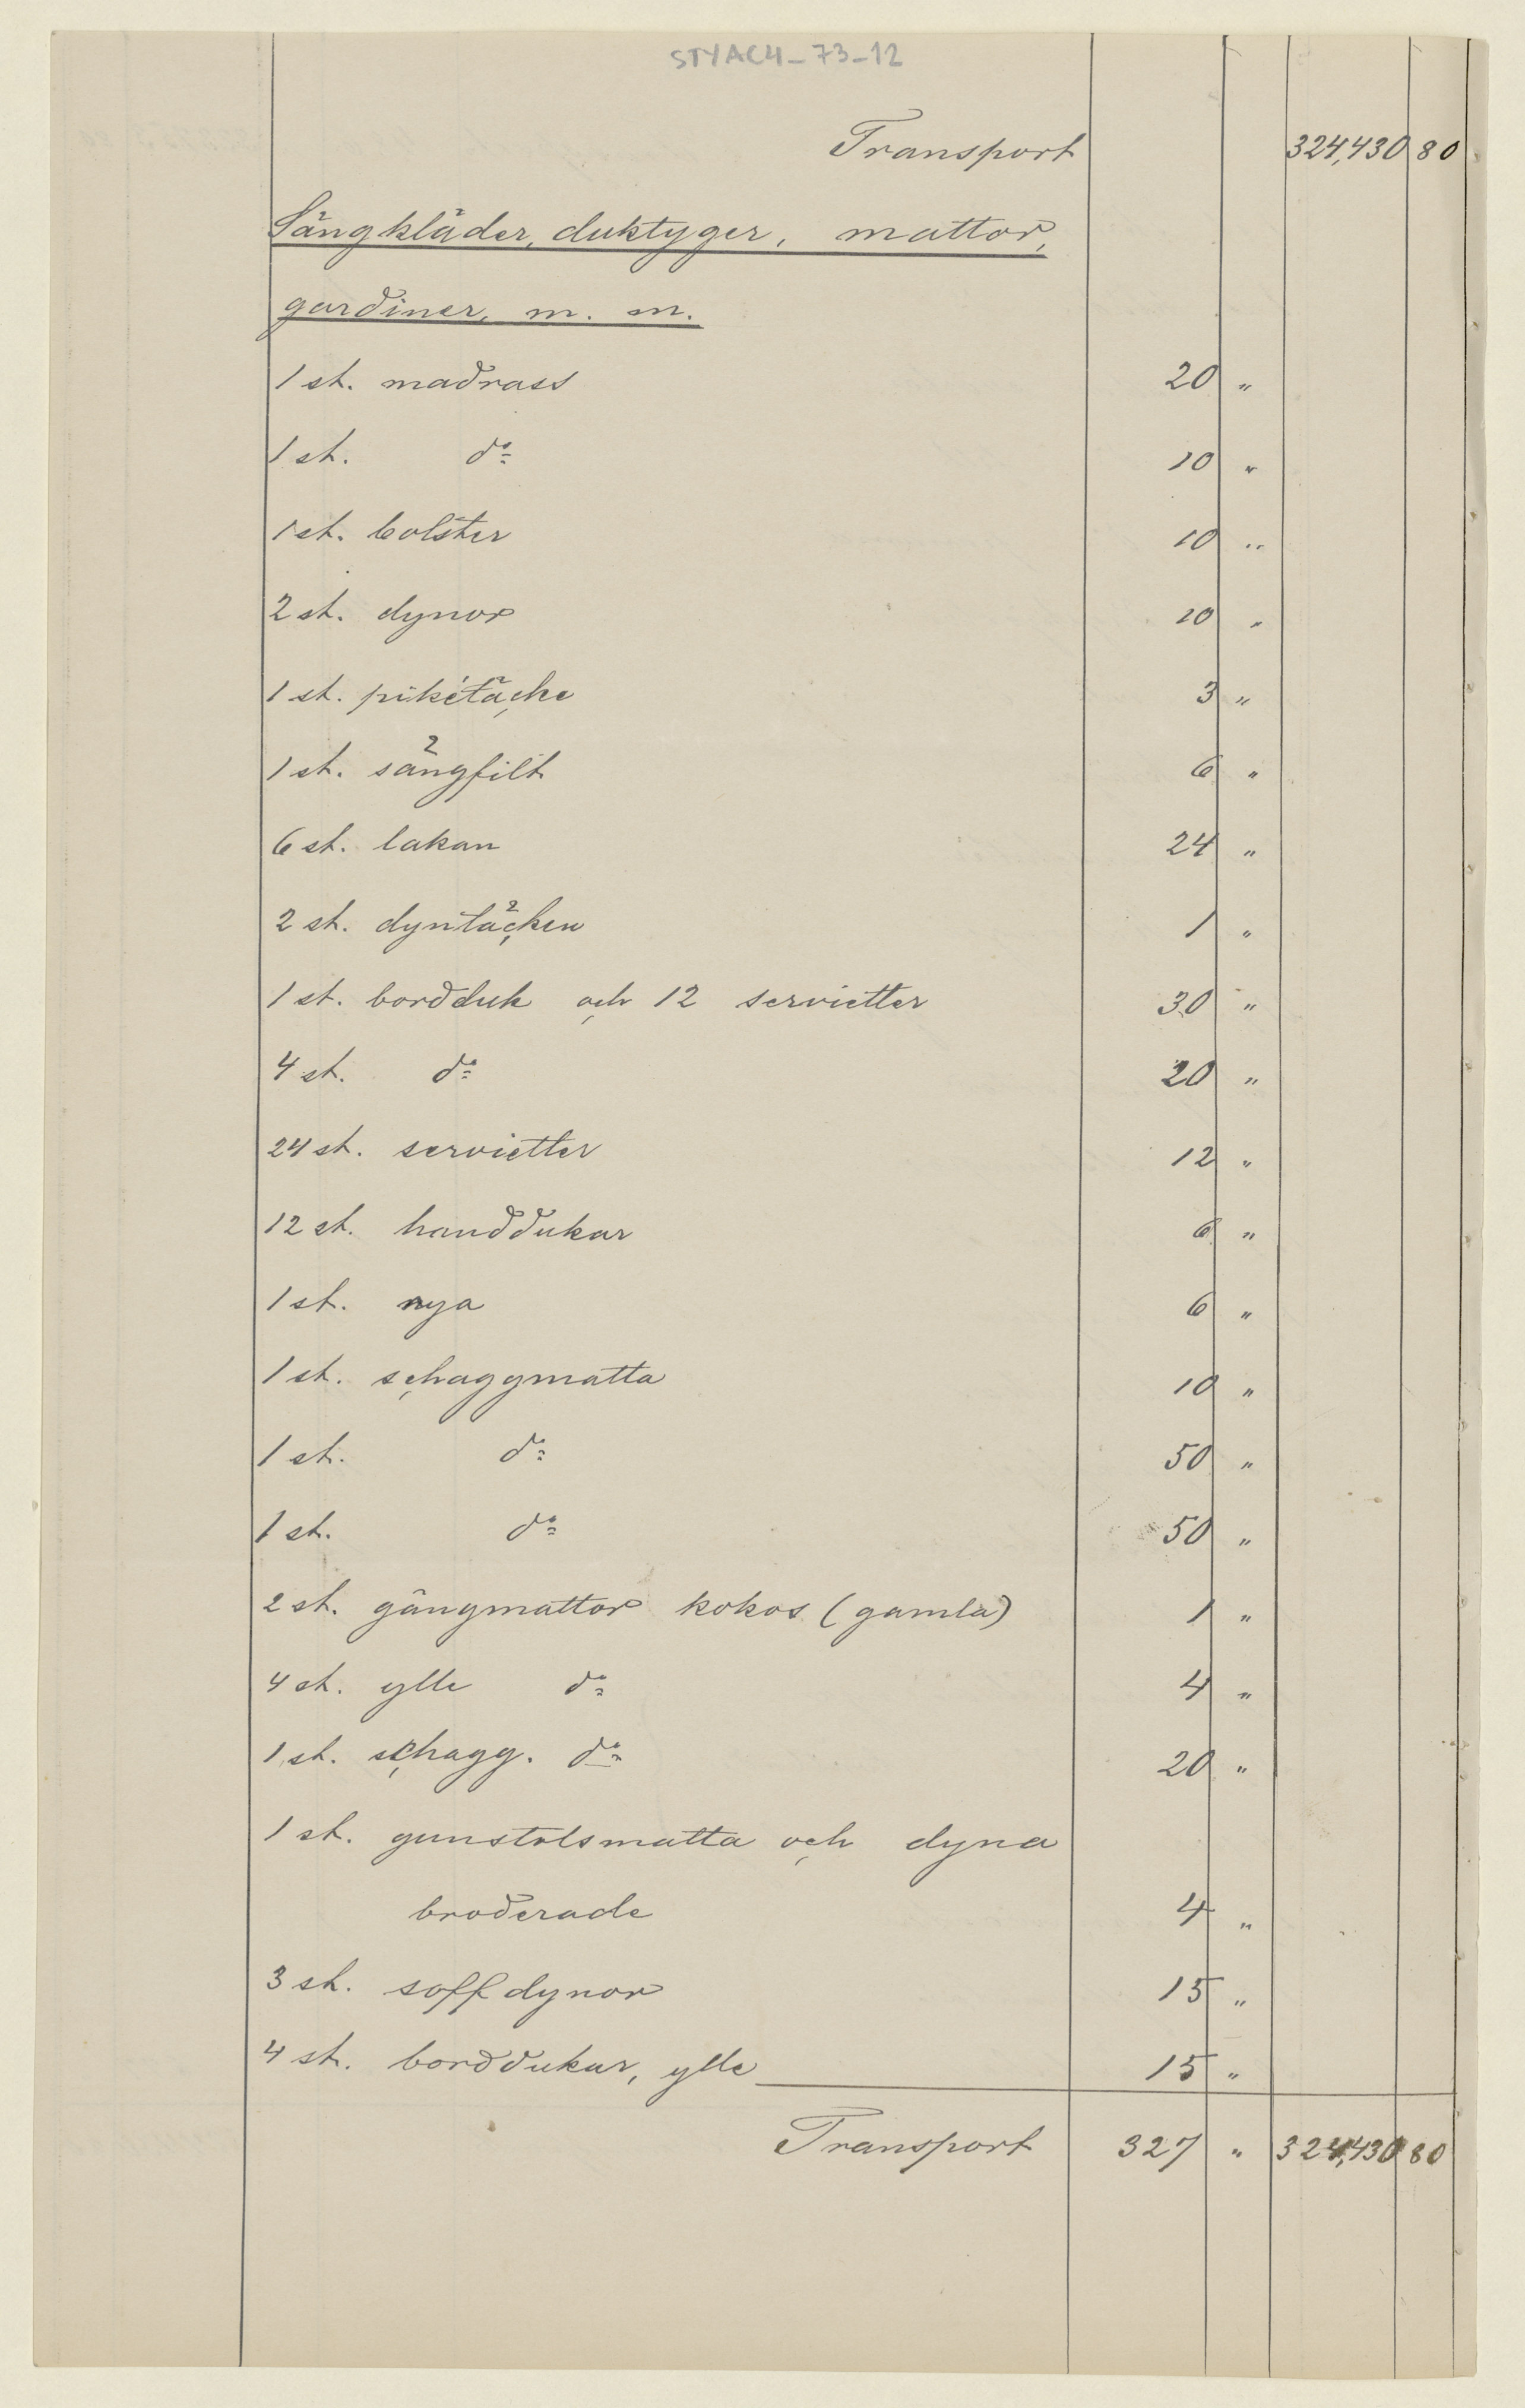 STYAC4_73_12
Transport 324,430 80
Sängkläder, duktyger, mattor,
gardiner, m. m.
1 st. madrass 20 "
1 st. d:o 10 "
1 st. bolster 10 "
2 st. dynor 10 "
1 st. pikétäcke 3 "
1 st. sängfilt 6 "
6 st. lakan 24 "
2 st. dyntäcken 1 "
1 st. bordduk och 12 servietter 30 "
4 st. d:o 20 "
24 st. servietter 12 "
12 st. handdukar 6 "
1 st. rya 6 "
1 st. schaggmatta 10 "
1 st. d:o 50 "
1 st. d:o 50 "
2 st. gångmattor kokos (gamla) 1 "
4 st. ylle d:o 4 "
1 st. schagg. d:o 20 "
1 st. gunstolsmatta och dyna
broderade 4 "
3 st. soffdynor 15 "
4 st. borddukar, ylle 15 "
Transport 327 " 324,430 80